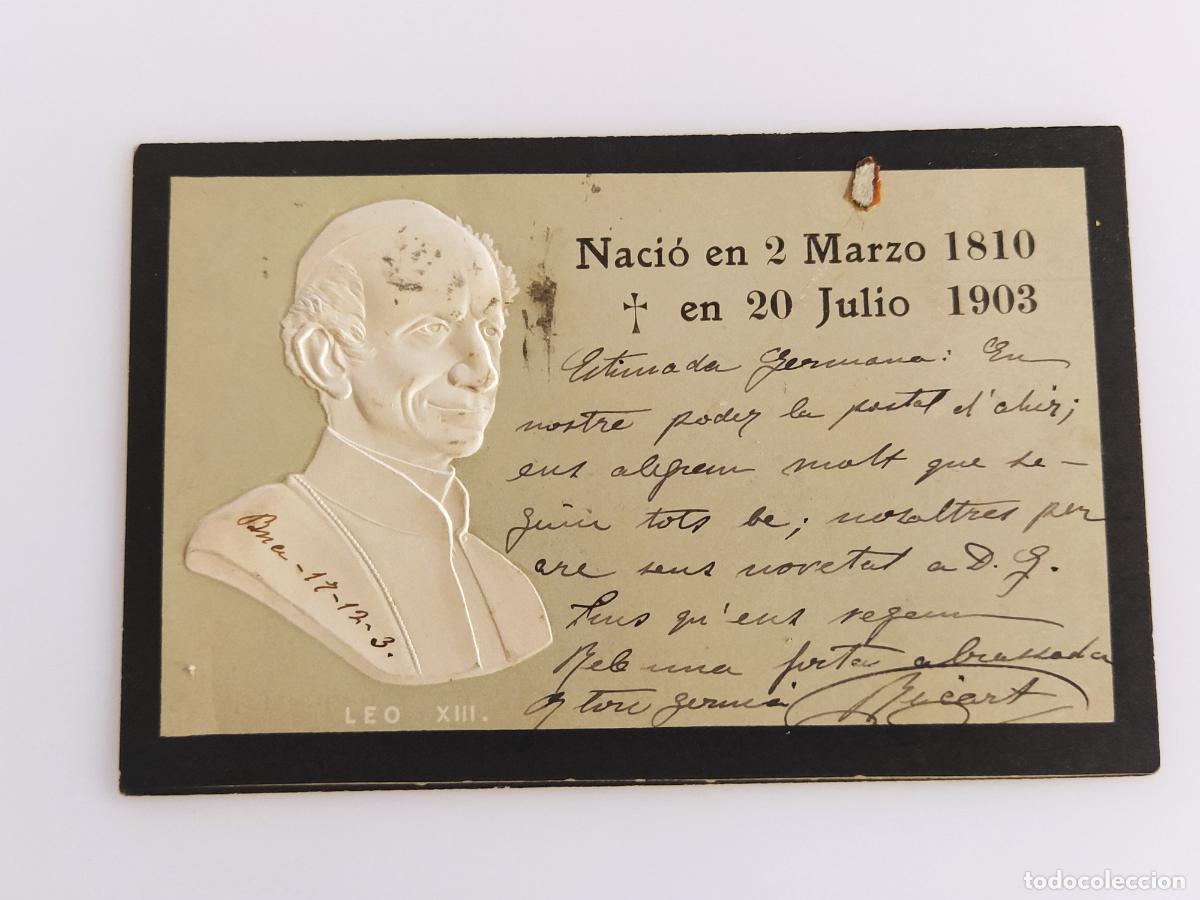 Nació en 2 Marzo 1810
† en 20 Julio 1903
Estimada Germana: En
nostre poder la postal d'ahir;
ens alegrem molt que se-
guiu tots be; nosaltres per
are sens novetat a D. G.
Fins qu'ens vegem
Reb una forta abrassada
de ton germá Ricart
Bna - 17-12-3.
LEO XIII.
todocoleccion